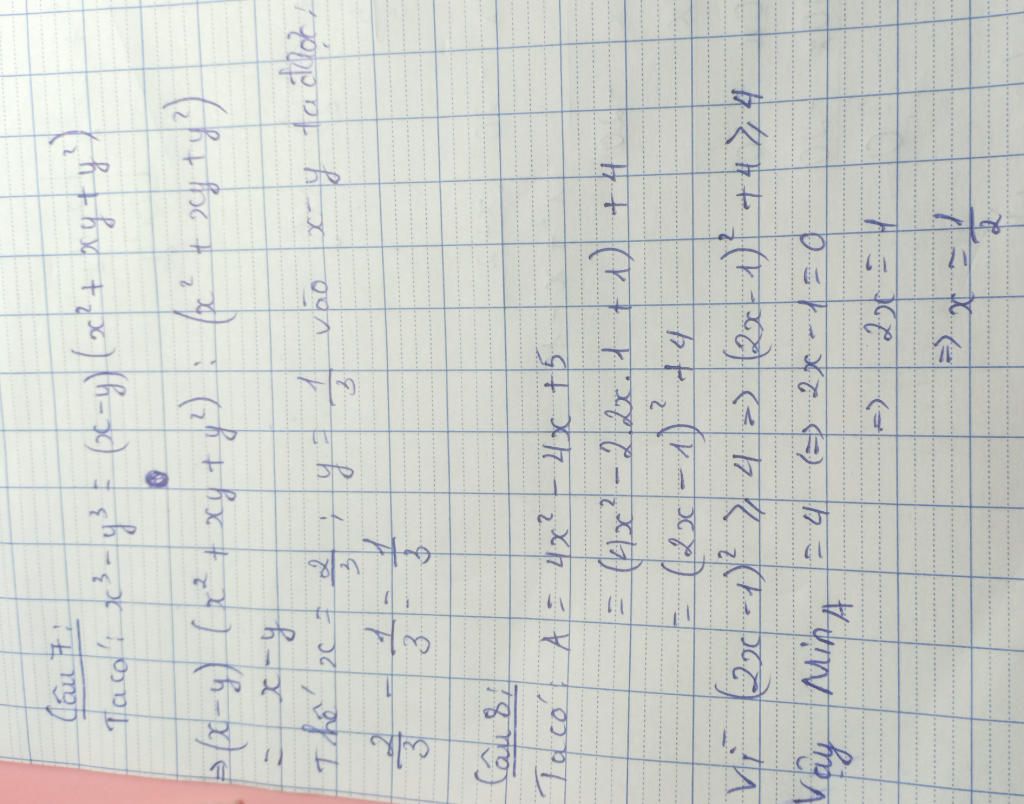 Câu 7:
Ta có: x³ - y³ = (x-y)(x² + xy + y²)
⇒ (x-y) (x² + xy + y²) : (x² + xy + y²)
= x-y
Thế x = 2/3 ; y = 1/3 vào x-y ta được:
2/3 - 1/3 = 1/3
Câu 8:
Ta có: A = 4x² - 4x + 5
= (4x² - 2.2x.1 + 1) + 4
= (2x - 1)² + 4
Vì (2x-1)² ⩾ 4 => (2x-1)² + 4 ⩾ 4
Vậy Min A = 4 (=> 2x - 1 = 0
=> 2x = 1
=> x = 1/2